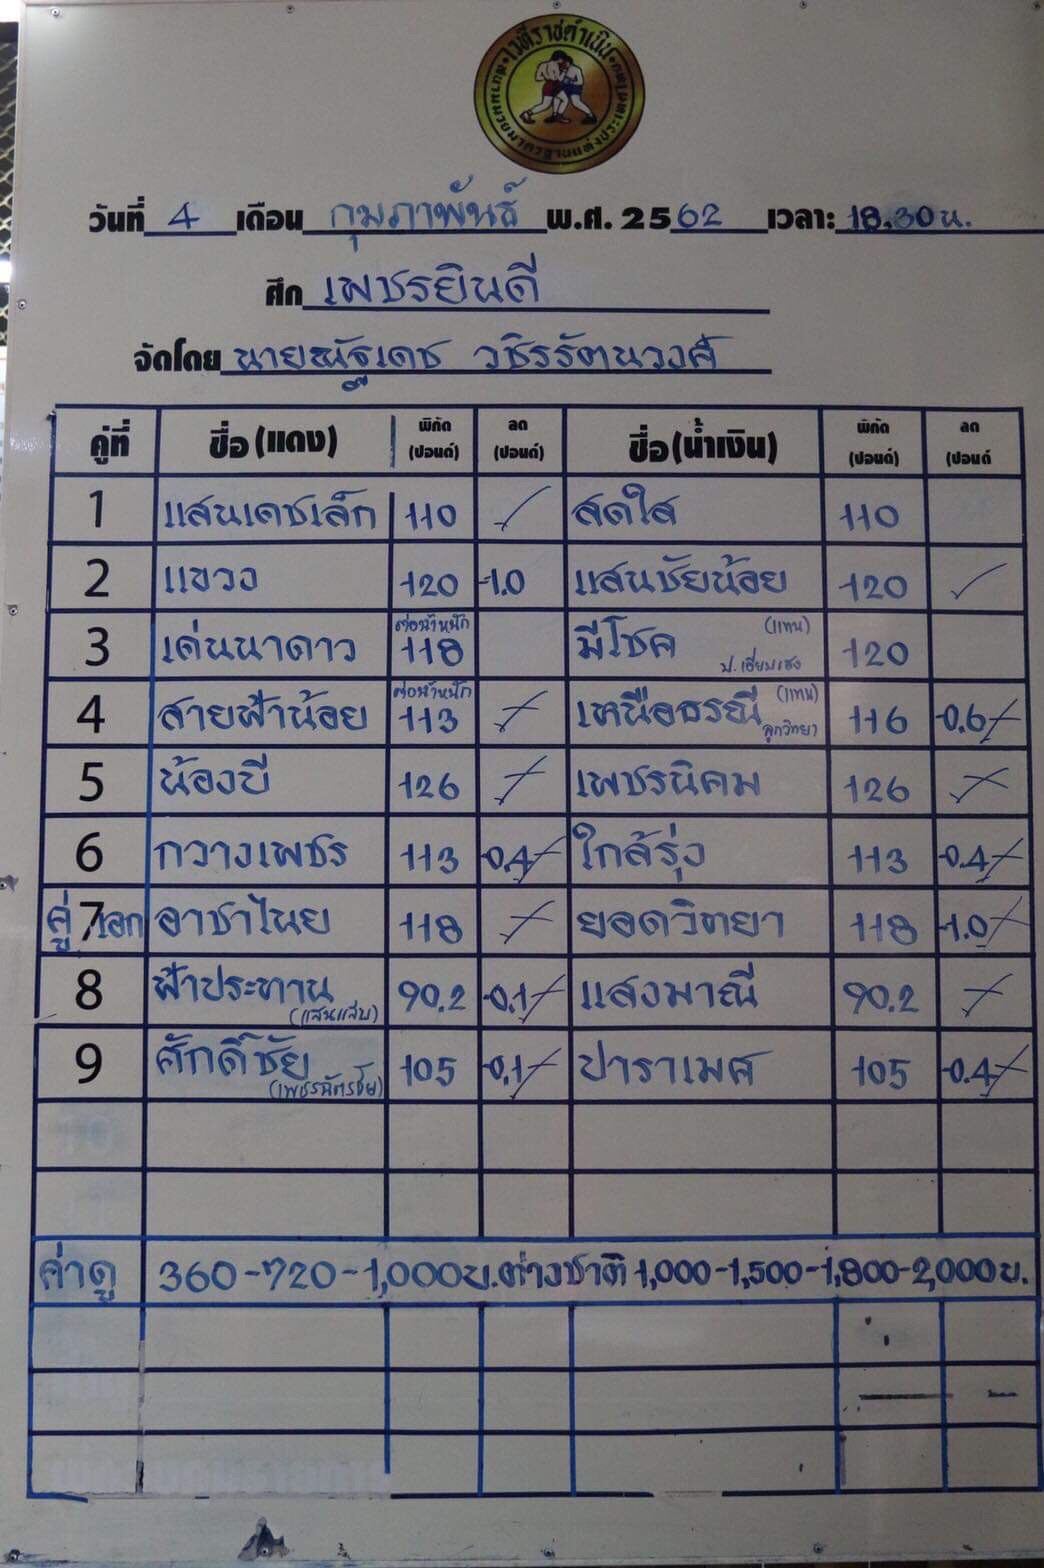 เวทีราชดำเนิน
วันที่ 4 เดือน กุมภาพันธ์ พ.ศ. 2562 เวลา: 18.30 น.
ศึก เพชรยินดี
จัดโดย นายณัฐเดช วชิรรัตนวงศ์
คู่ที่ ชื่อ (แดง) พิกัด (ปอนด์) ลด (ปอนด์) ชื่อ (น้ำเงิน) พิกัด (ปอนด์) ลด (ปอนด์
1 แสนเดชเล็ก 110 ✓ สดใส 110
2 แขวง 120 -1.0 แสนชัยน้อย 120 ✓
3 เด่นนาดาว ต่อน้ำหนัก 118 มีโชค (แทน) ป.เฮี่ยบเฮง 120
4 สายฟ้าน้อย ต่อน้ำหนัก 113 เหนือธรณี (แทน) ลูกวิทยา) 116 -0.6
5 น้องบี 126 เพชรนิคม 126
6 กวางเพชร 113 -0.4 ใกล้รุ่ง 113 -0.4
คู่ 7 เอก อาชาไนย 118 ยอดวิทยา 118 -1.0
8 ฟ้าประทาน (แสนแสบ) 90.2 -0.1 แสงมาณี 90.2
9 ศักดิ์ชัย (เพชรฉัตรชัย) 105 -0.1 ปาราเมศ 105 -0.4
ค่าดู 360-720-1,000 บ. ต่างชาติ 1,000-1,500-1,800-2,000 บ.